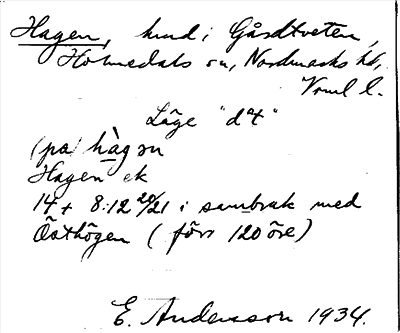 Hagen, hmd i Gårdtveten,
Holmedals sn, Nordmarks hd,
Vrml l.
Läge "d4"
(på) hàgən
Hagen ek
14+ 8:12 20/21 i sambruk med
Östhögen (förr 120 öre)
E. Andersson 1934.